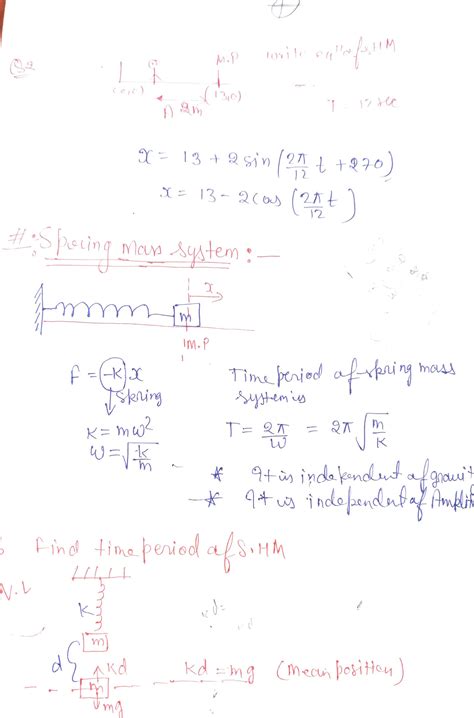 Q2
M.P write eqn of S.HM
(0,0) (13,0)
A 2m T = 12 sec
x = 13 + 2 sin (2π/12 t + 270)
x = 13 - 2 cos (2π/12 t)
#: Spring mass system:-
x
m
M.P
F = -K x Time period of spring mass
spring system is
K = mω² T = 2π/ω = 2π √m/K
ω = √k/m
* It is independent of gravit
* It is independent of Amplit
Find time period of S.HM
N.L
K
m
d kd kd = mg (mean position)
m
mg